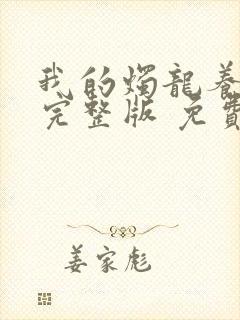 我的燭龍養
完整版 免費
姜家彪